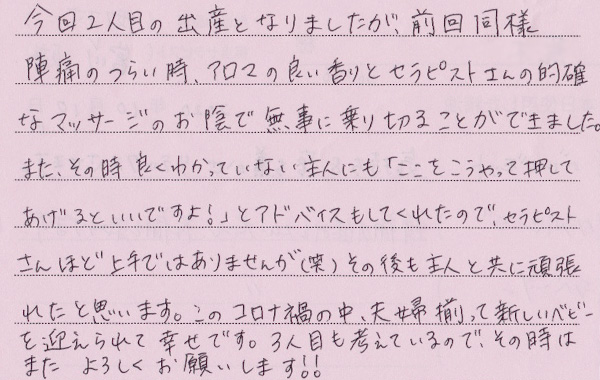 今回2人目の出産となりましたが、前回同様
陣痛のつらい時、アロマの良い香りとセラピストさんの的確
なマッサージのお陰で無事に乗り切ることができました。
また、その時良くわかっていない主人にも「ここをこうやって押して
あげるといいですよ!」とアドバイスもしてくれたので、セラピスト
さんほど上手ではありませんが(笑)その後も主人と共に頑張
れたと思います。このコロナ禍の中、夫婦揃って新しいベビー
を迎えられて幸せです。3人目も考えているので、その時は
また よろしくお願いします!!